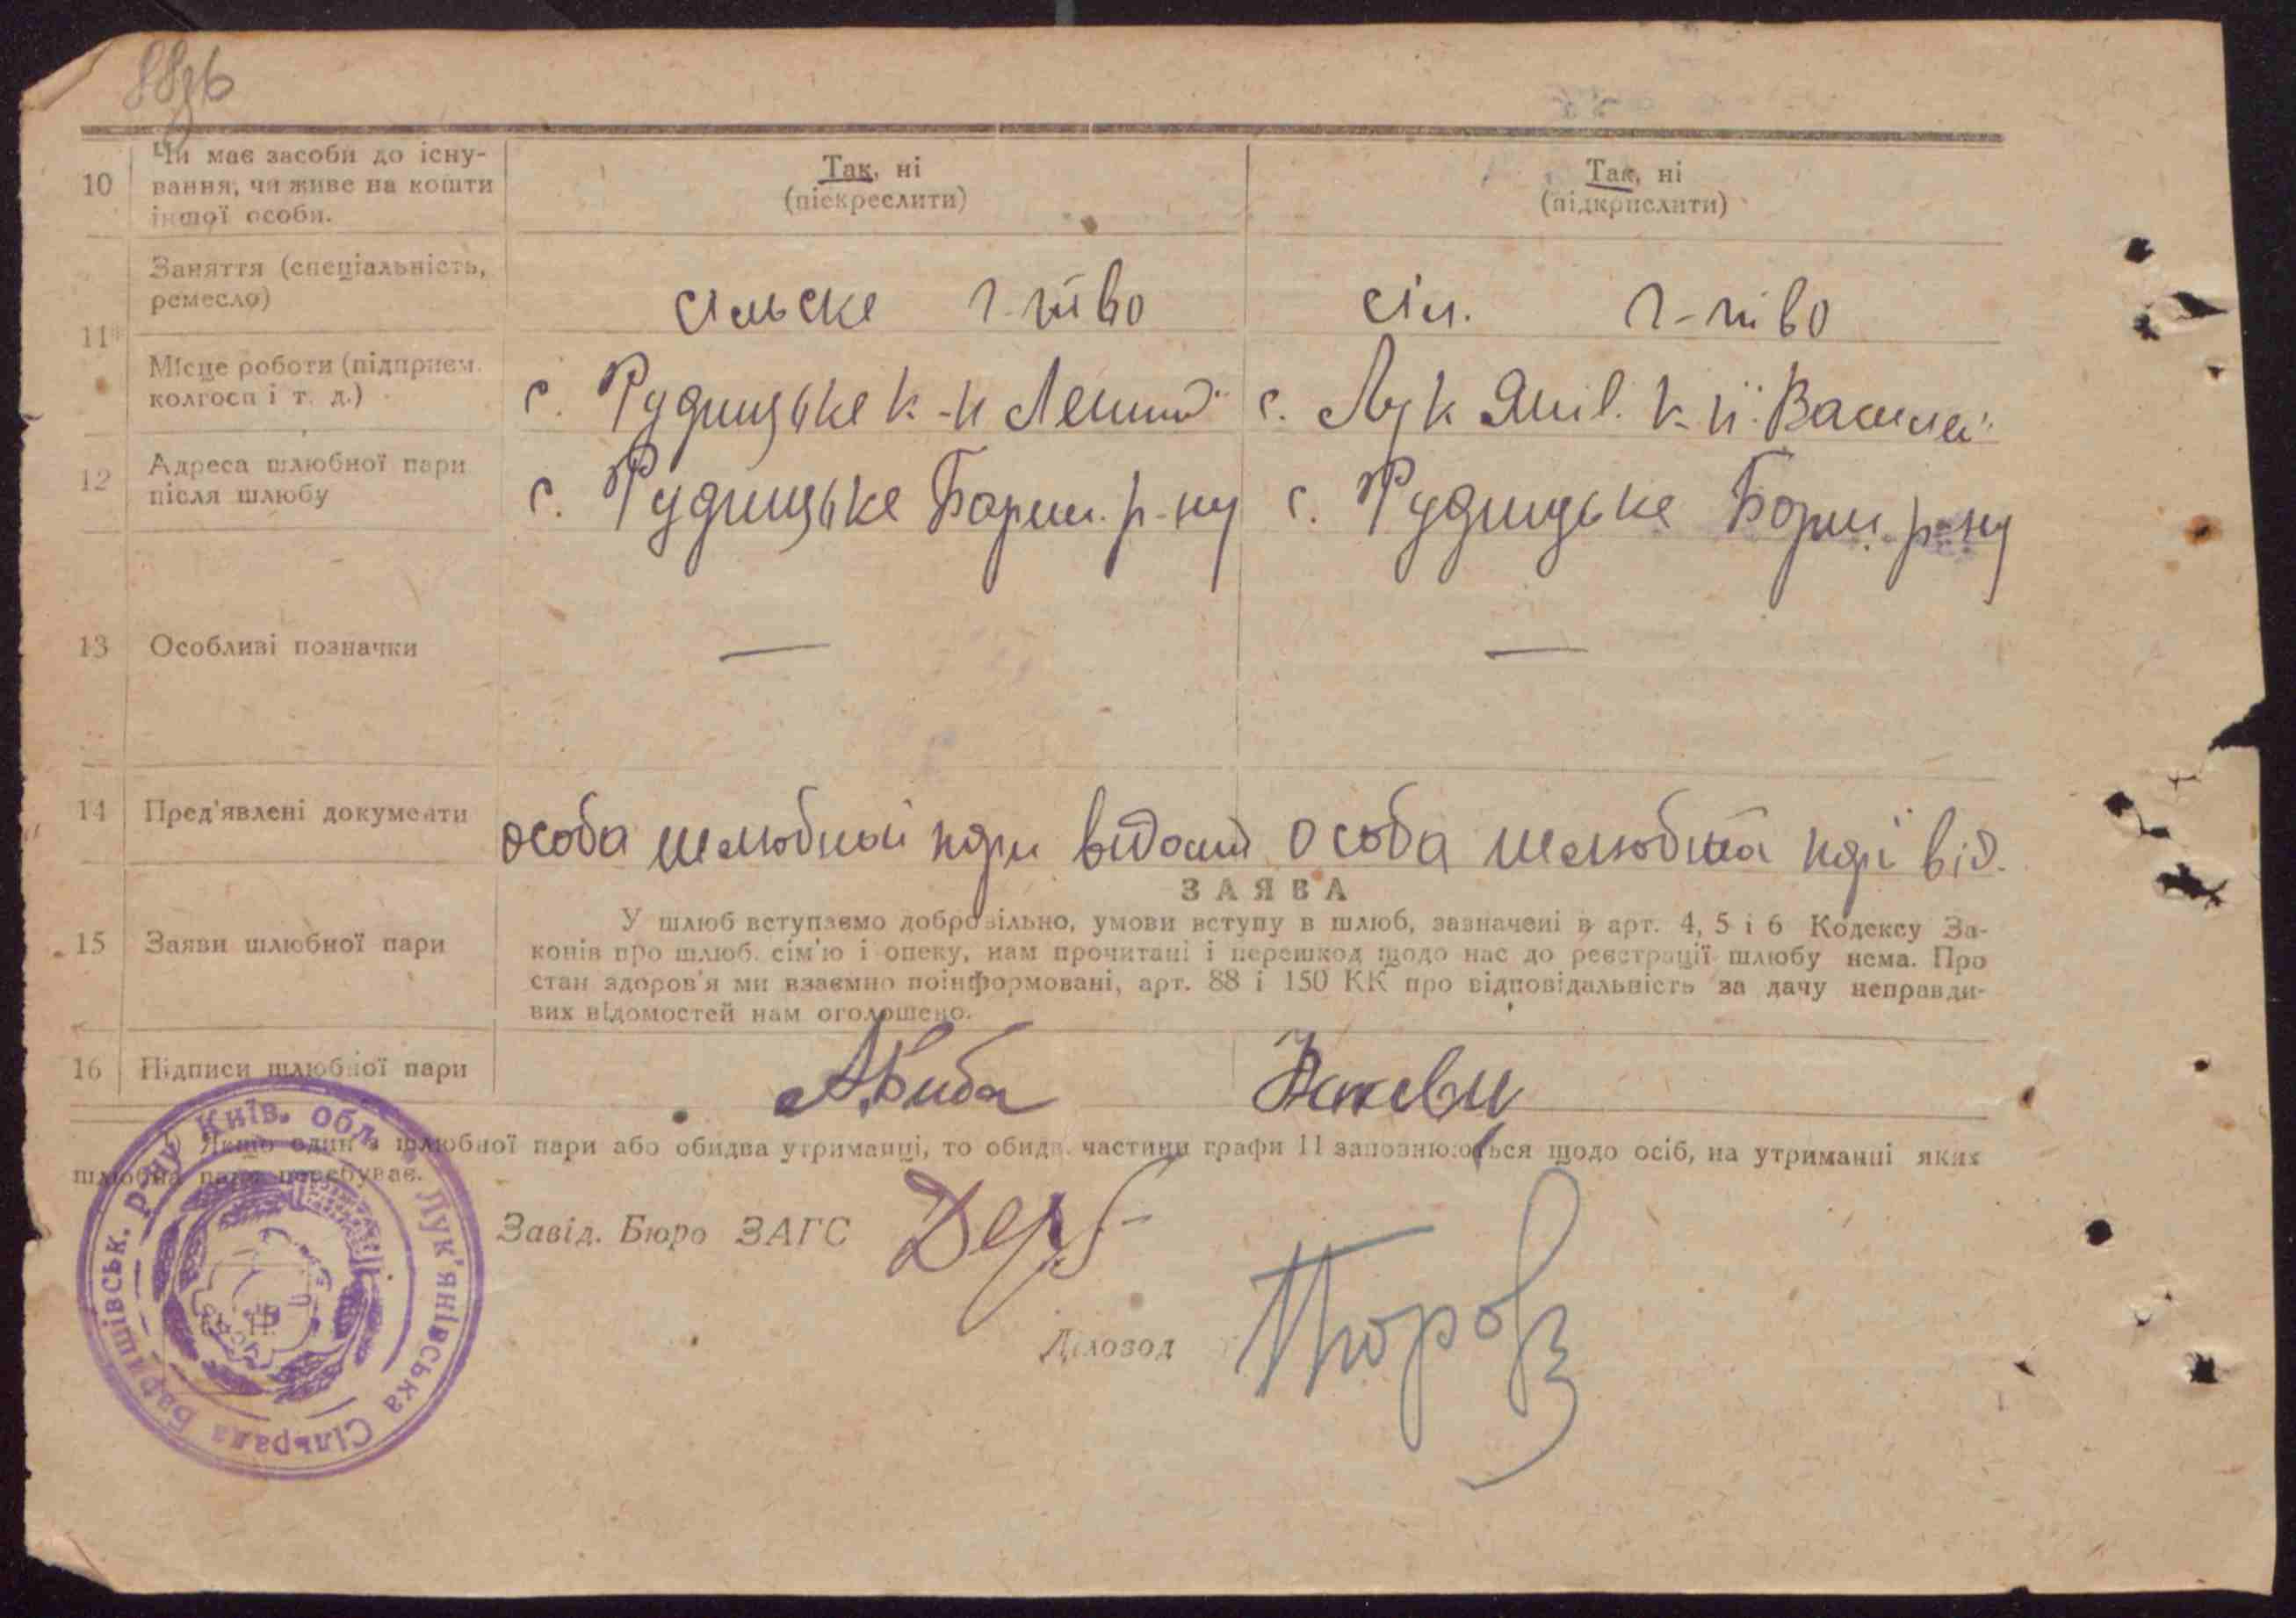 88зв
10
Чи має засоби до існу-
вання, чи живе на кошти
іншої особи.
Так, ні
(піекреслити)
Так, ні
(підкрислити)
11*
Заняття (спеціальність,
ремесло)
сільске г-тво
сіл. г-тво
Місце роботи (підприєм.
колгосп і т. д.)
с. Рудницьке к-п Леніна
с. Лук Янів. к-п
12
Адреса шлюбної пари
після шлюбу
с. Рудницьке Бориш. р-ну
с. Рудницьке Бориш. р-ну
13
Особливі позначки
—
—
14
Пред'явлені документи
особа шлюбной пари
особа шлюбна парі від.
15
Заяви шлюбної пари
ЗАЯВА
У шлюб вступаємо добровільно, умови вступу в шлюб, зазначені в арт. 4, 5 і 6 Кодексу За-
конів про шлюб. сім'ю і опеку, нам прочитані і перешкод щодо нас до реєстрації шлюбу нема. Про
стан здоров'я ми взаємно поінформовані, арт. 88 і 150 КК про відповідальність за дачу неправди-
вих відомостей нам оголошено.
16
Підписи шлюбної пари
Якщо один з шлюбної пари або обидва утриманці, то обидв. частини графи 11 заповнюються щодо осіб, на утриманні яких
шлюбна пара перебуває.
Завід. Бюро ЗАГС
Діловод
Баришівськ. р-ну Київ. обл. Лук'янівська Сільрада